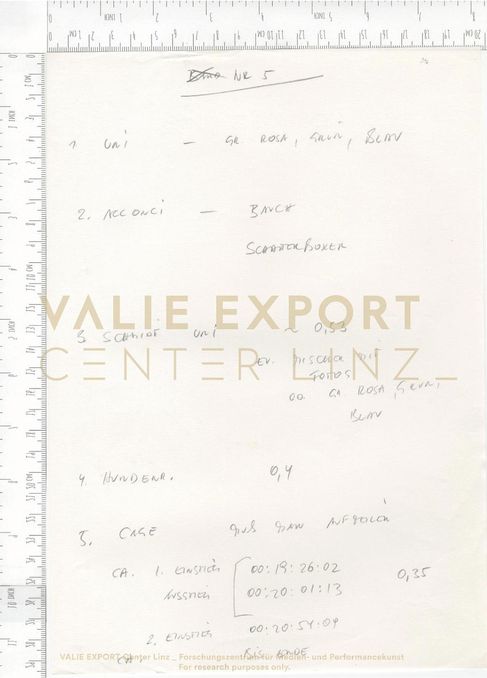 NR 5
1. UNI — GR. ROSA, GRÜN, BLAU
2. ACCONCI — BAUCH
SCHATTENBOXER
VALIE EXPORT
CENTER LINZ_
3 SCHMIDT UNI ~ 0,53
EV. MISCHEN MIT
FOTOS
OD. GR. ROSA, GRÜN,
BLAU
4. HUNDENR. 0,4
5. CAGE AUFTEILEN
CA. 1. EINSTIEG 00:19:26:02 0,35
AUSSTIEG 00:20:01:13
2. EINSTIEG 00:20:54:09
CA BIS ENDE
VALIE EXPORT Center Linz _ Forschungszentrum für Medien- und Performancekunst
For research purposes only.